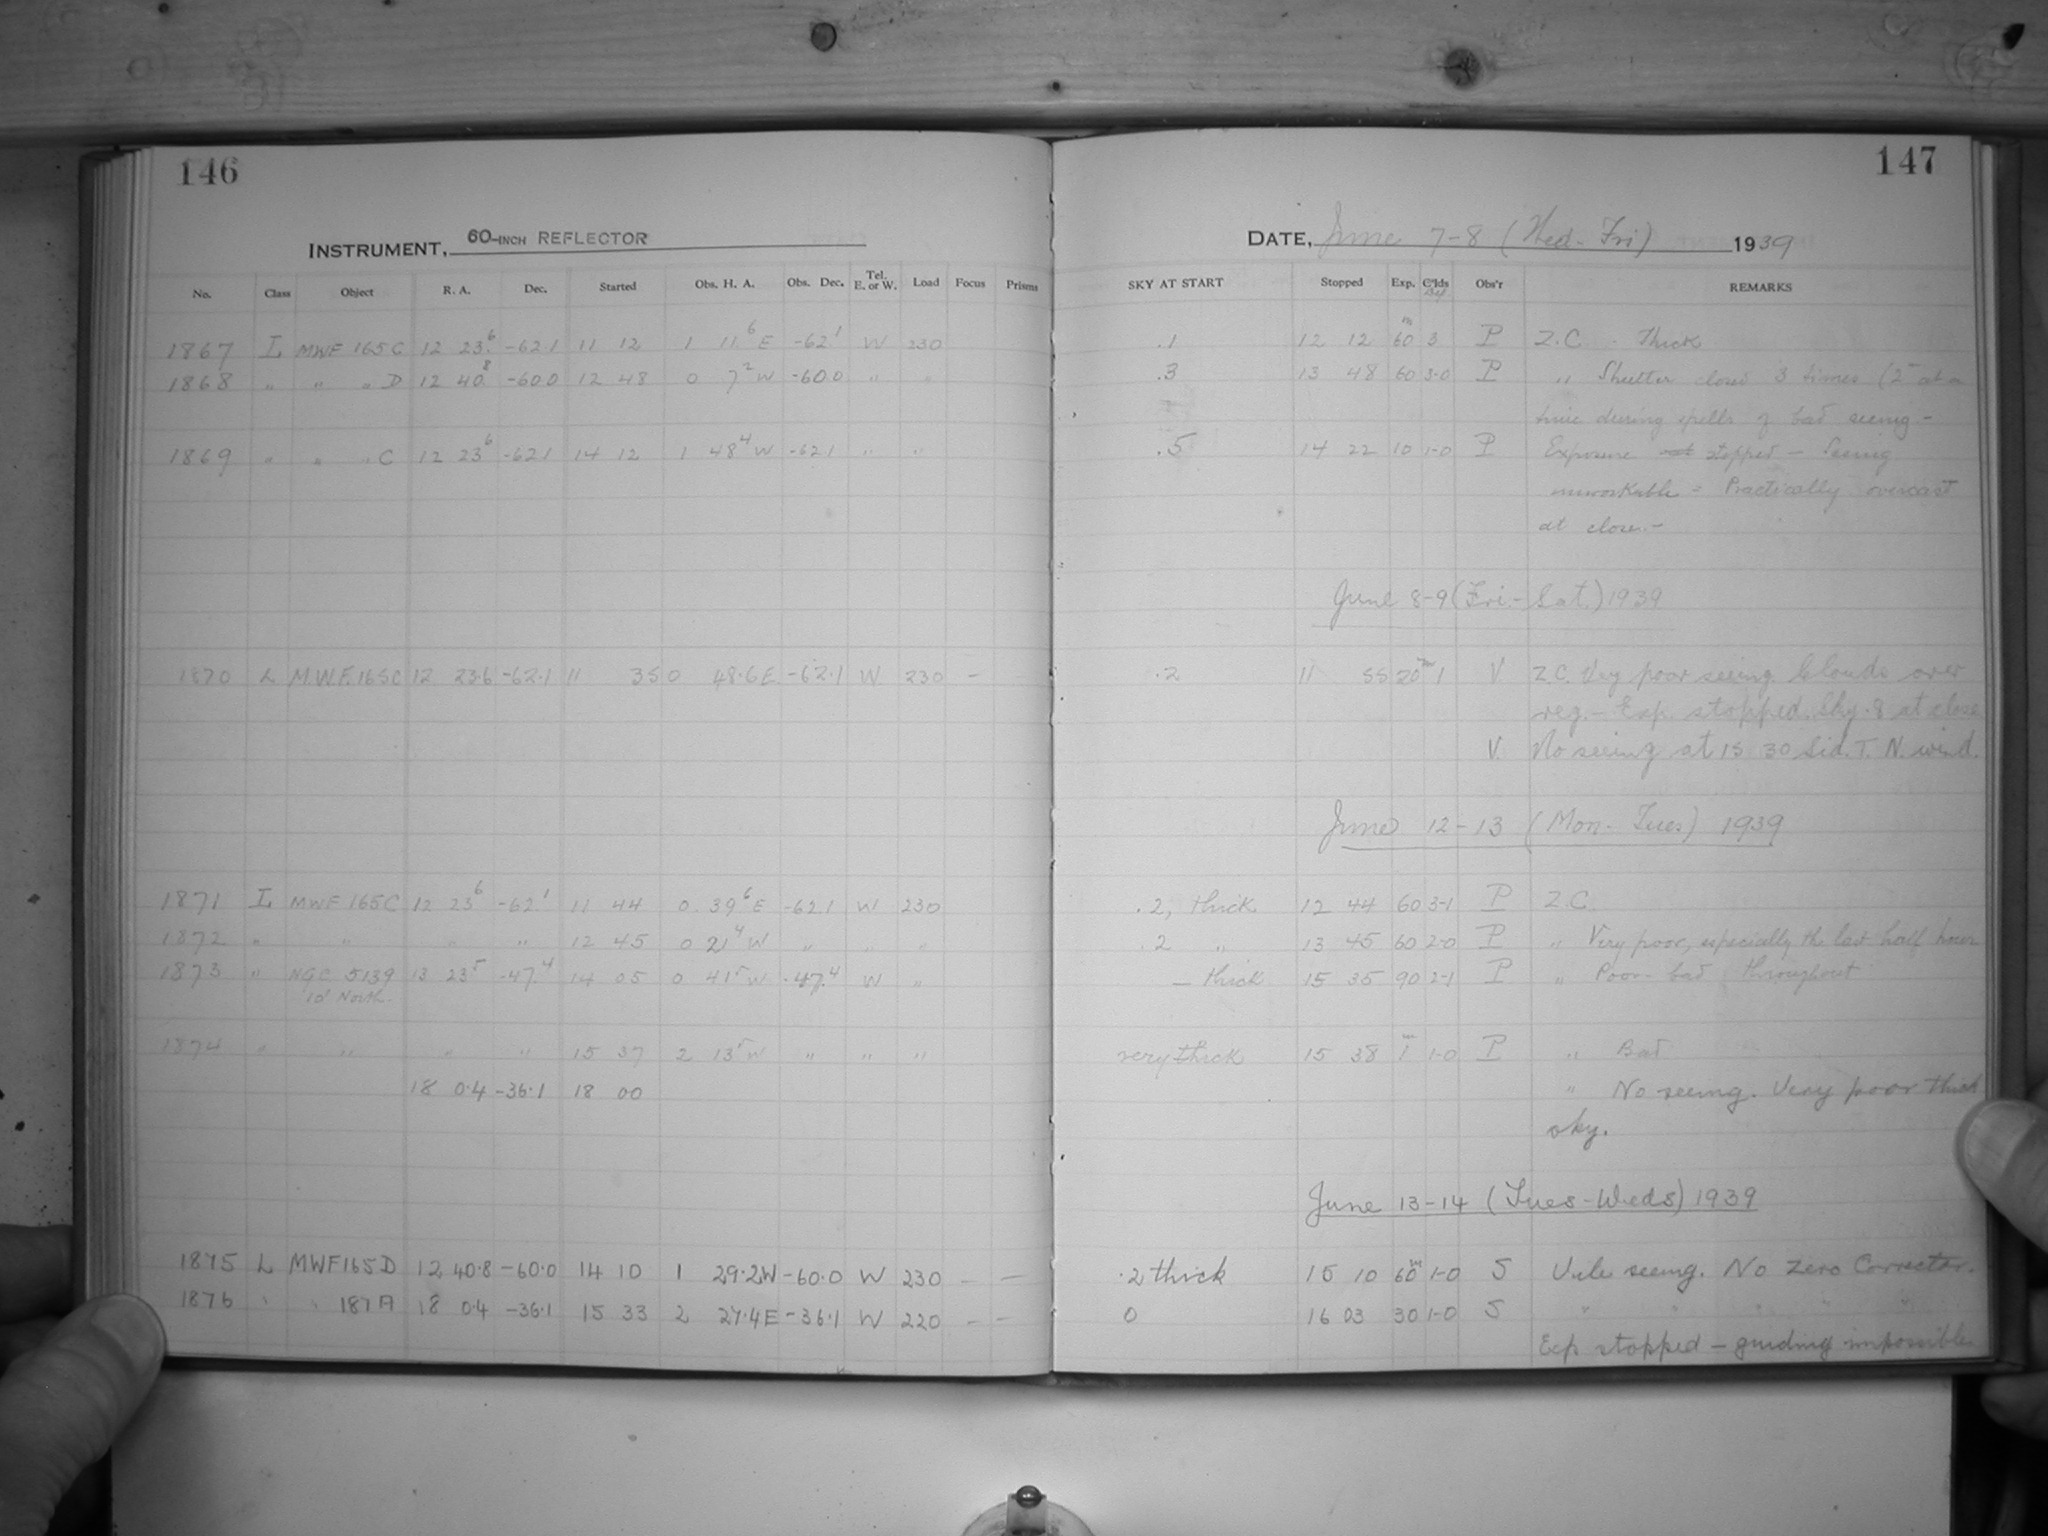 146
INSTRUMENT, 60-INCH REFLECTOR
No. Class Object R. A. Dec. Started Obs. H. A. Obs. Dec. Tel. E. or W. Load Focus Prisms
1867 L MWF 165C 12 23.6 -62.1 11 12 1 11.6 E -62.1 W 230
1868 " " " D 12 40.8 -60.0 12 48 0 7.2 W -60.0 " "
1869 " " " C 12 23.6 -62.1 14 12 1 48.4 W -62.1 " "
1870 L M.W.F. 165C 12 23.6 -62.1 11 35 0 48.6 E -62.1 W 230 -
1871 L MWF 165C 12 23.6 -62.1 11 44 0 39.6 E -62.1 W 230
1872 " " " " 12 45 0 21.4 W " " "
1873 " NGC 5139 13 23.5 -47.4 14 05 0 41.5 W -47.4 W "
10' North.
1874 " " " " 15 37 2 13.5 W " " "
18 0.4 -36.1 18 00
1875 L MWF165D 12 40.8 -60.0 14 10 1 29.2W -60.0 W 230 - -
1876 " " 187A 18 0.4 -36.1 15 33 2 27.4E -36.1 W 220 - -
147
DATE, June 7-8 (Wed-Fri) 1939
SKY AT START Stopped Exp. C'lds Obs'r REMARKS
.1 12 12 60m 3 P Z.C. - Thick
.3 13 48 60 3-0 P " Shutter closed 3 times (2m at a
time during spells of bad seeing -
.5 14 22 10 1-0 P Exposure stopped - Seeing
unworkable - Practically overcast
at close. -
June 8-9 (Fri.-Sat.) 1939
.2 11 55 20m 1 V. Z.C. Very poor seeing Clouds over
reg. - Exp. stopped. Sky .8 at close
V. No seeing at 15 30 Sid. T. N. wind.
June 12-13 (Mon-Tues) 1939
.2, thick 12 44 60 3-1 P Z.C.
.2 " 13 45 60 2-0 P " Very poor, especially the last half hour
- thick 15 35 90 2-1 P " Poor - bad throughout
very thick 15 38 1m 1-0 P " Bad
" No seeing. Very poor thick
sky.
June 13-14 (Tues-Weds) 1939
.2 thick 15 10 60m 1-0 S Vile seeing. No Zero Corrector.
0 16 03 30 1-0 S " " " " "
Exp stopped - guiding impossible